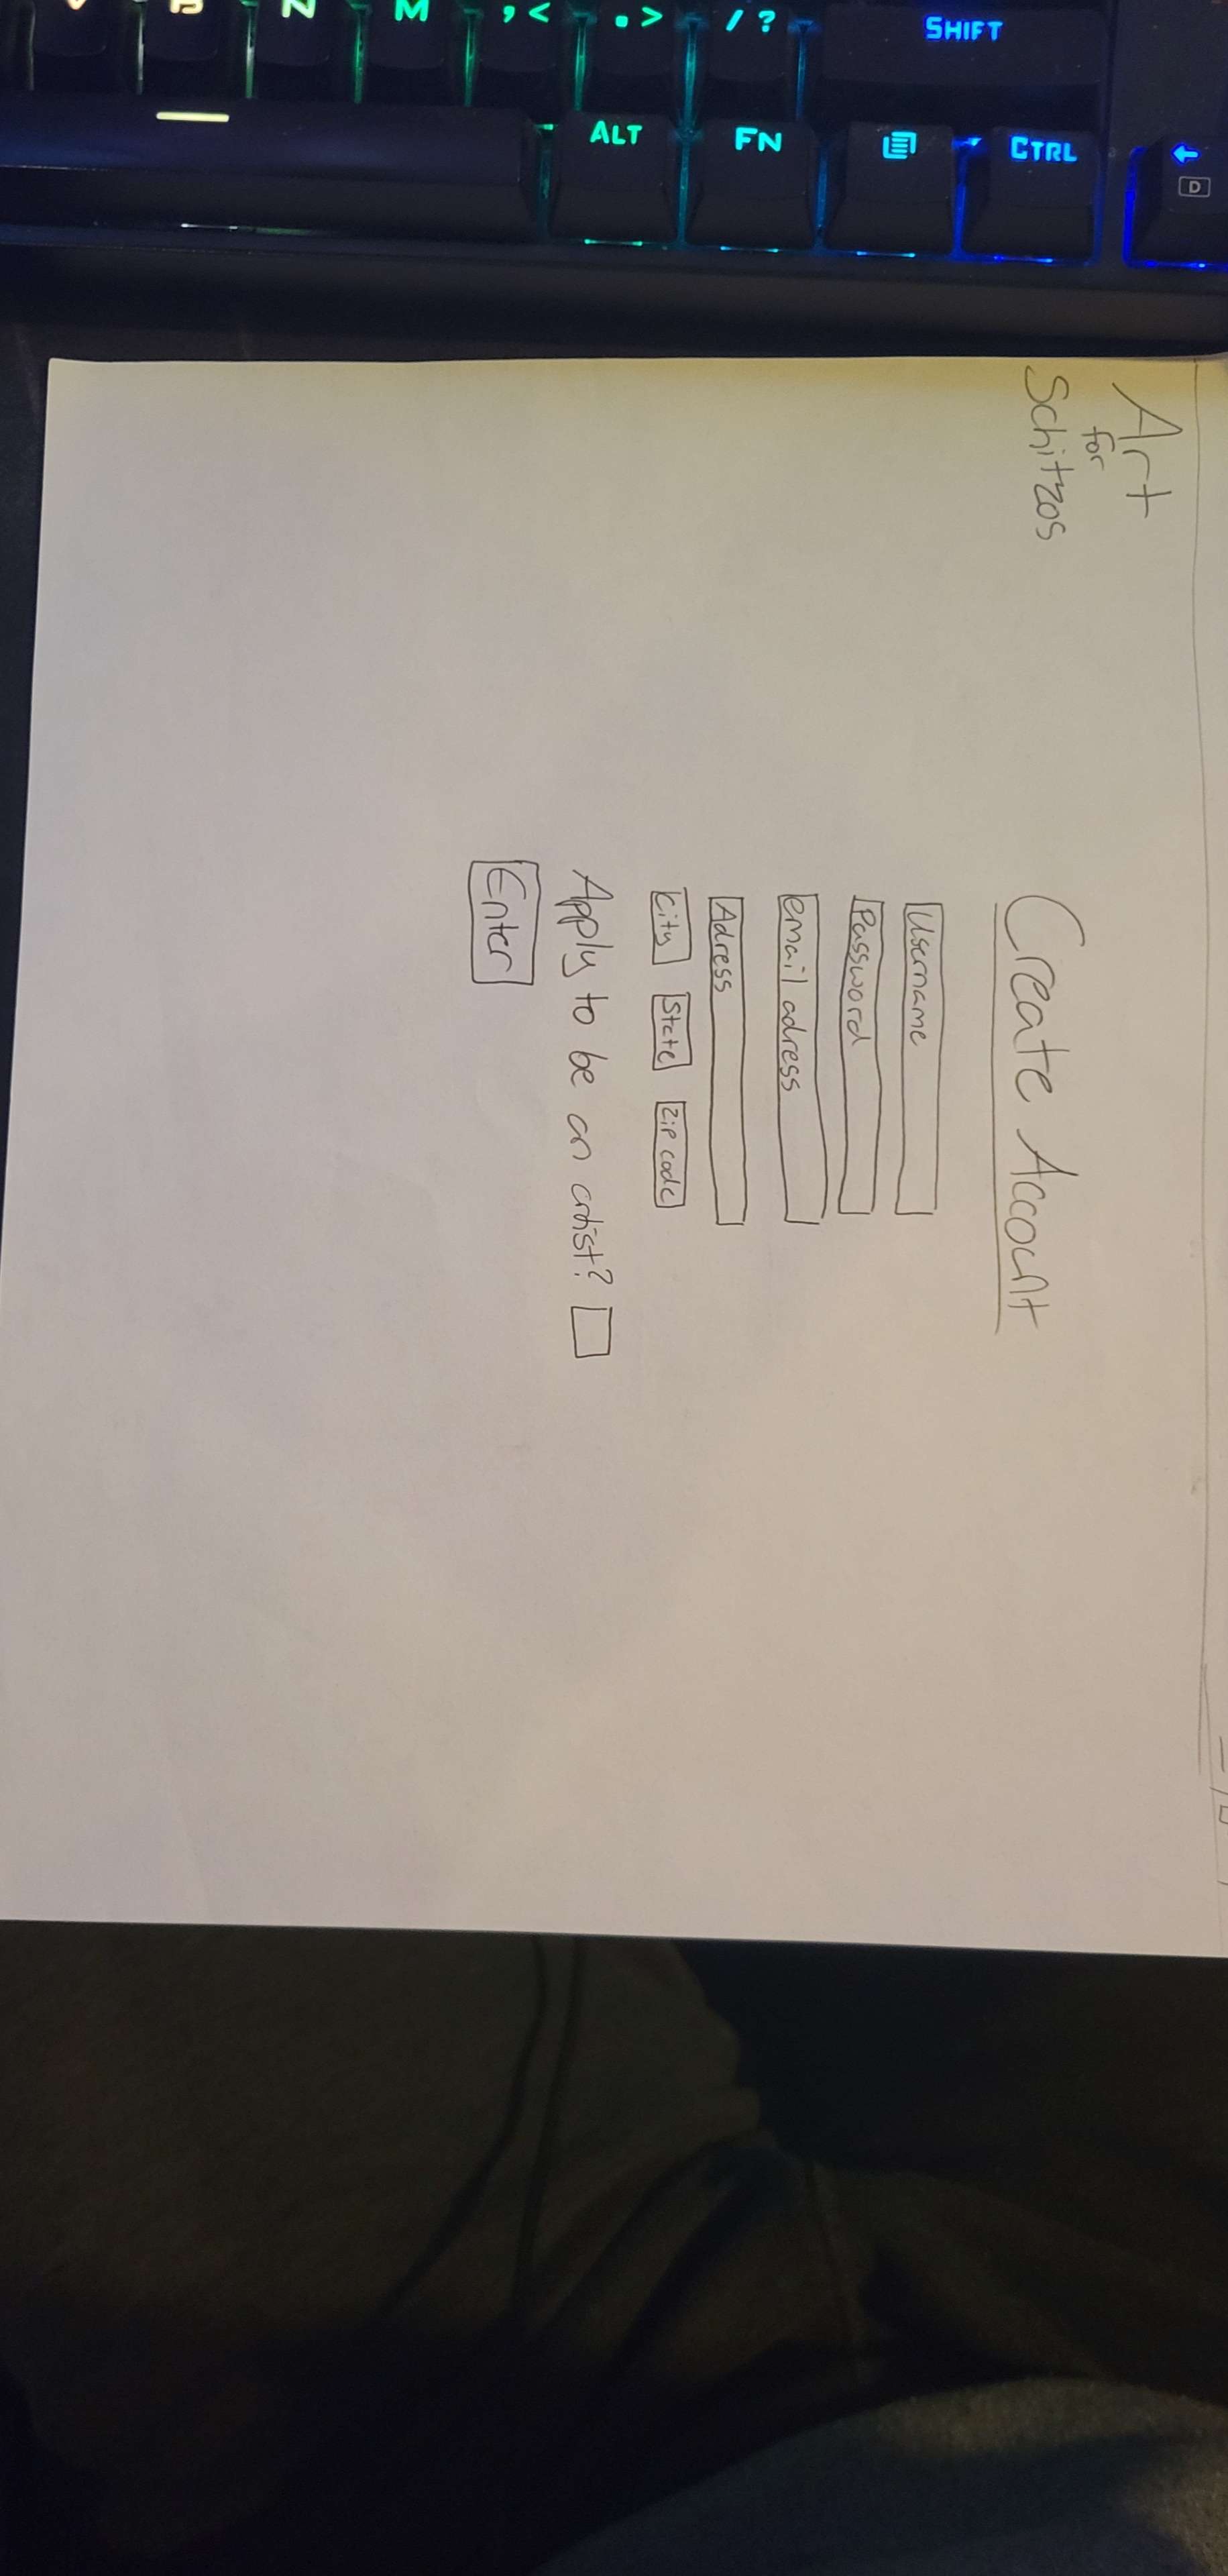 M , < . > / ? SHIFT
ALT FN CTRL
D
Art
for
Schitzos
Create Account
Username
Password
email adress
Adress
City State Zip code
Apply to be an artist?
Enter